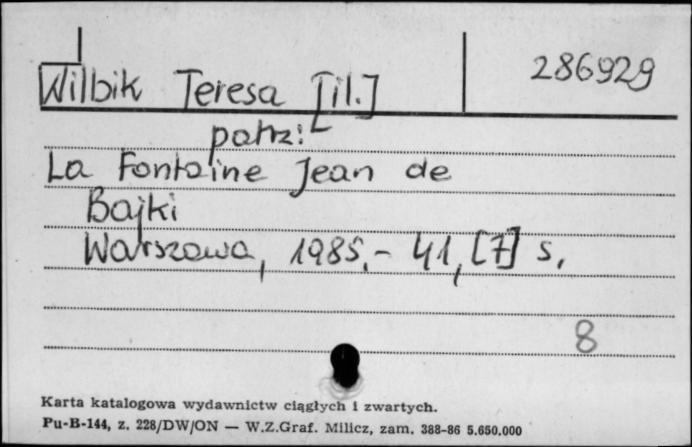 Wilbik Teresa [il.]
286929
patrz:
La Fontaine Jean de
Bajki
Warszawa, 1985.- 41, [7] s.
8
Karta katalogowa wydawnictw ciągłych i zwartych.
Pu-B-144, z. 228/DW/ON — W.Z.Graf. Milicz, zam. 388-86 5.650.000